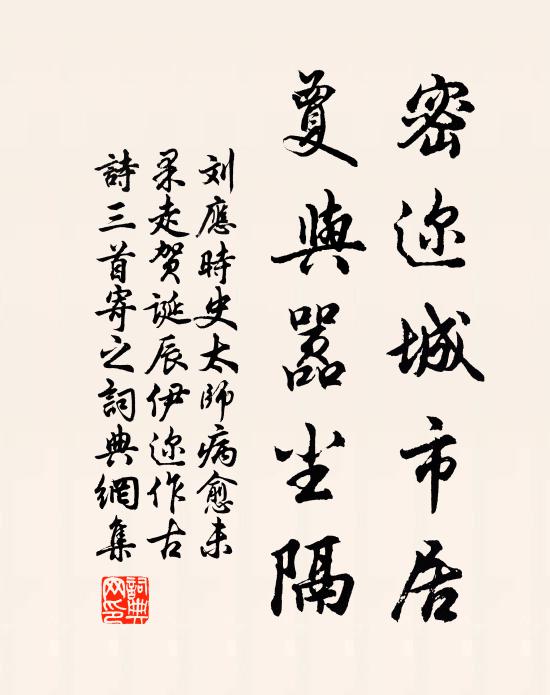 密迩城市居
夐與嚣尘隔
刘應時史太师病愈未
果走賀誕辰伊迩作古
詩三首寄之詞典網集
詞典
网印